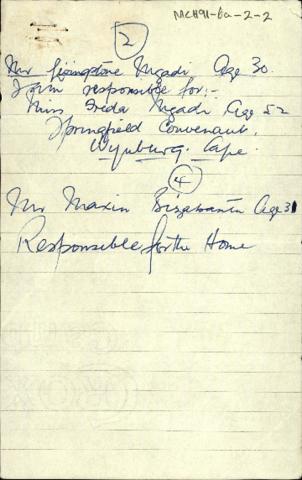 MCH91-6a-2-2
2
Mr Livingstone Mgadi Age 30.
I am responsible for:-
Miss Freda Mgadi Age 52
Springfield Convenant,
Wynburg. Cape.
4
Mr Maxin Age 31
Responsible for the Home